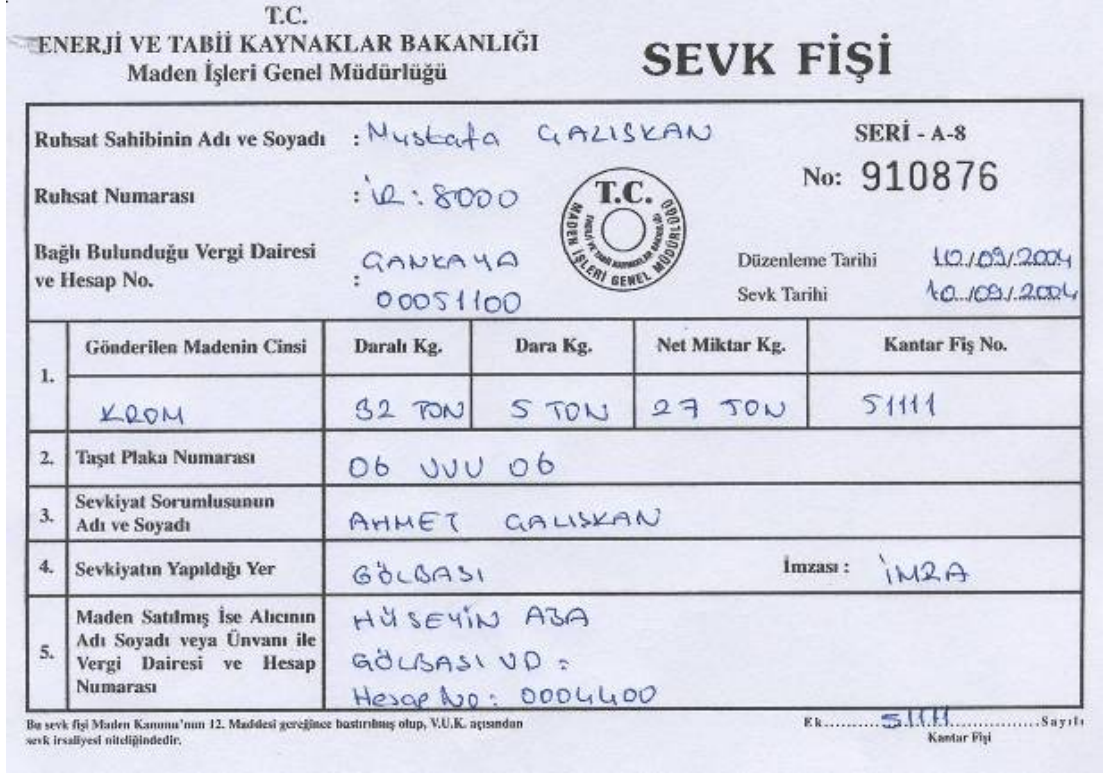 T.C.
ENERJİ VE TABİİ KAYNAKLAR BAKANLIĞI
Maden İşleri Genel Müdürlüğü
SEVK FİŞİ
Ruhsat Sahibinin Adı ve Soyadı : Mustafa ÇALIŞKAN
SERİ - A-8
No: 910876
Ruhsat Numarası : İR : 8000
T.C.
MADEN İŞLERİ GENEL MÜDÜRLÜĞÜ
ENERJİ VE TABİİ KAYNAKLAR BAKANLIĞI
Bağlı Bulunduğu Vergi Dairesi
ve Hesap No. :
ÇANKAYA
00051100
Düzenleme Tarihi 10/09/2004
Sevk Tarihi 10/09/2004
1.
Gönderilen Madenin Cinsi Daralı Kg. Dara Kg. Net Miktar Kg. Kantar Fiş No.
KROM 32 TON 5 TON 27 TON 51111
2. Taşıt Plaka Numarası 06 VVU 06
3. Sevkiyat Sorumlusunun
Adı ve Soyadı
AHMET ÇALIŞKAN
4. Sevkiyatın Yapıldığı Yer GÖLBAŞI İmzası : İMZA
5. Maden Satılmış İse Alıcının
Adı Soyadı veya Ünvanı ile
Vergi Dairesi ve Hesap
Numarası
HÜSEYİN ABA
GÖLBAŞI VD :
Hesap No : 0004400
Bu sevk fişi Maden Kanunu'nun 12. Maddesi gereğince bastırılmış olup, V.U.K. açısından
sevk irsaliyesi niteliğindedir.
Ek..........51111..............Sayılı
Kantar Fişi